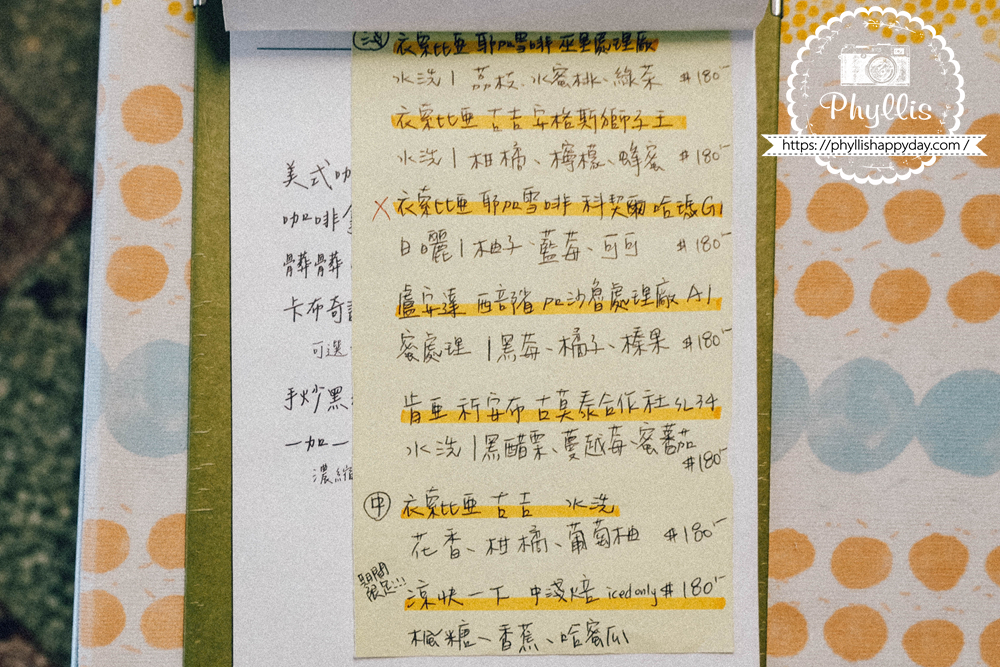 淺 衣索比亞 耶加雪啡 巫里處理廠
水洗 | 荔枝、水蜜桃、綠茶 $180-
衣索比亞 古吉 安格斯獅子王
水洗 | 柑橘、檸檬、蜂蜜 $180-
X 衣索比亞 耶加雪啡 科契爾 哈瑪 G1
日曬 | 柚子、藍莓、可可 $180-
盧安達 西部省 加沙魯處理廠 A1
蜜處理 | 黑莓、橘子、榛果 $180-
肯亞 祈安布 古莫泰合作社 SL34
水洗 | 黑醋栗、蔓越莓、蜜蕃茄
$180-
中 衣索比亞 古吉 水洗
花香、柑橘、葡萄柚 $180-
期間
限定!!!
涼快一下 中淺焙 iced only $180-
楓糖、香蕉、哈蜜瓜
美式咖
咖啡
髒髒
卡布奇
可選
手炒黑
一加一
濃縮
Phyllis
https://phyllishappyday.com/